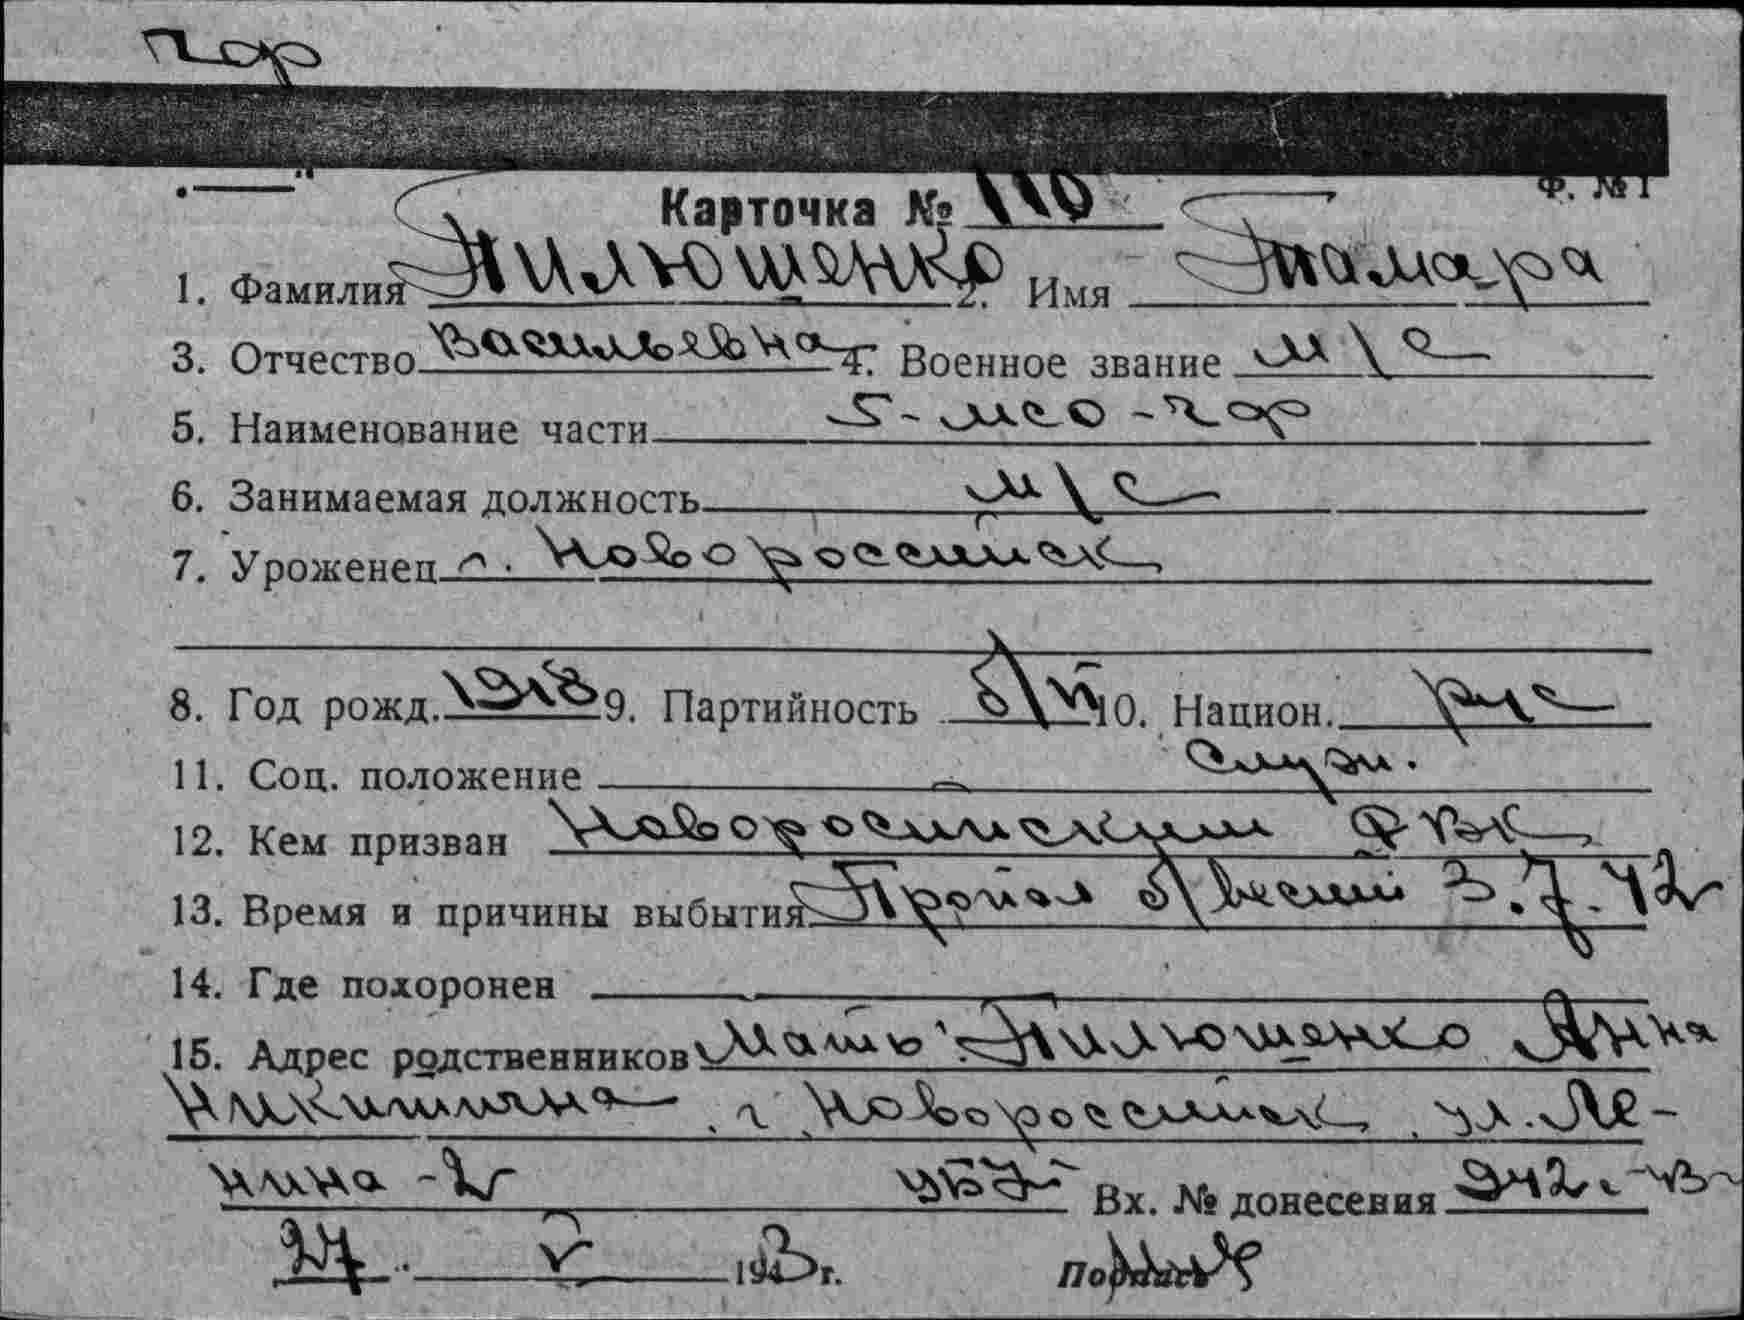 чф
Ф. №1
Карточка № 110
1. Фамилия Тилюшенко 2. Имя Тамара
3. Отчество Васильевна 4. Военное звание м/с
5. Наименование части 5-мсо-чф
6. Занимаемая должность м/с
7. Уроженец г. Новороссийск
8. Год рожд. 1918 9. Партийность б/п 10. Национ. рус
11. Соц. положение служ.
12. Кем призван Новороссийским ГВК
13. Время и причины выбытия Пропал б/вести 3.7.42
14. Где похоронен
15. Адрес родственников Мать: Тилюшенко Анна
Никитична, г. Новороссийск, ул. Ле-
нина -2 Вх. № донесения 942
24 V 1943 г. Подпись